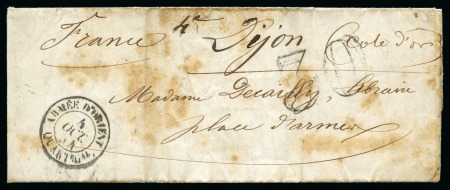 France 4e Dijon (Cote d'or)
Madame Decailly, libraire
place d'armes
ARMÉE D'ORIENT
4
OCT.
54
QUARTIER